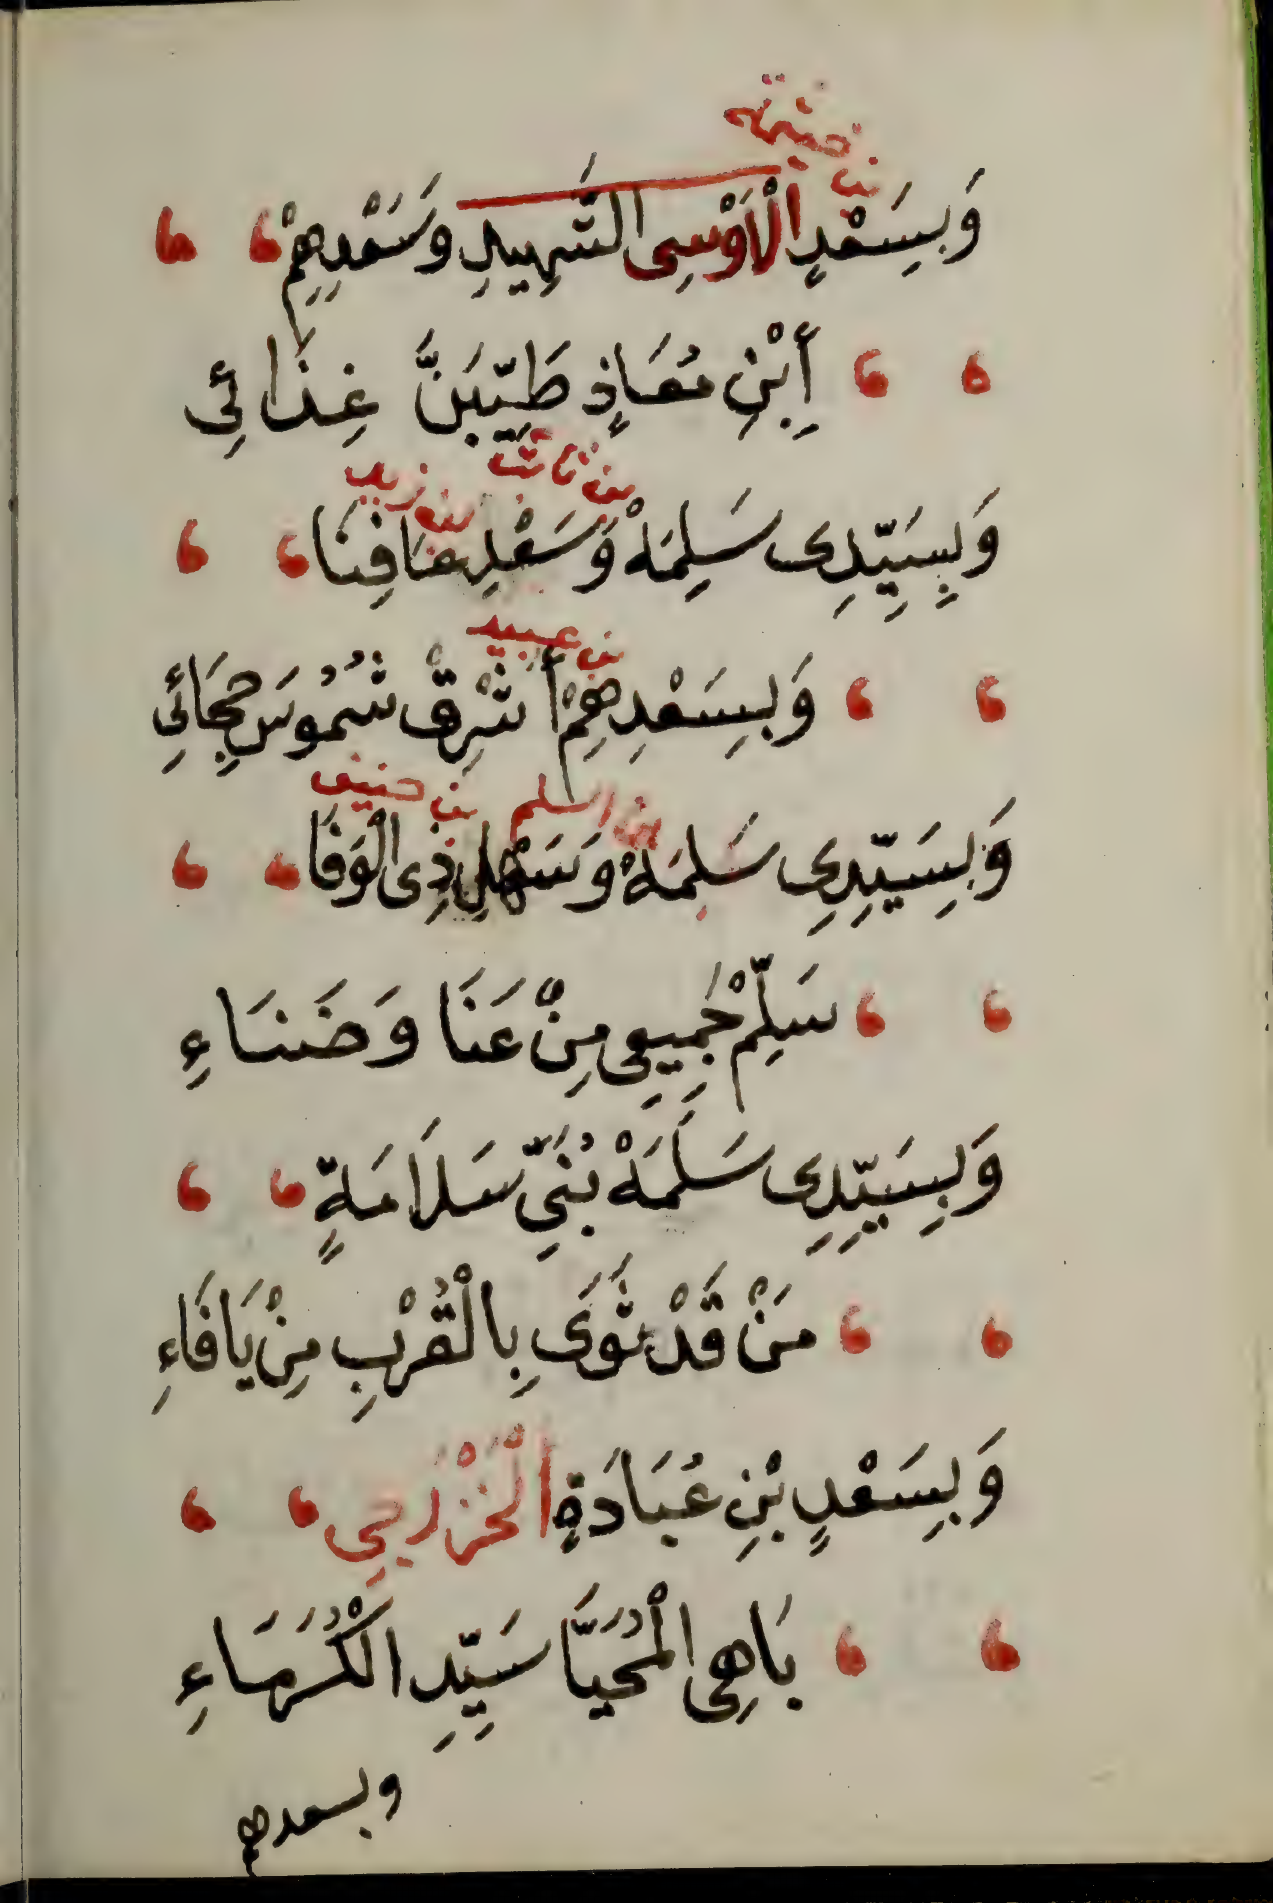 بن خيثمة
وَبِسَعْدٍ الْأَوْسِى الشَّهِيدِ وَسَعْدِهِمْ
أِبْنِ مُعَاذٍ طَيِّبَنَّ غِذَائِى
بن ثابت بن زيد
وَبِسَيِّدِى سَلِمَهْ وَسَعْدٍ عَافِنَا
بن عبيد
وَبِسَعْدِهِمْ أَشْرِقْ شُمُوسَ حِجَائِى
بن اسلم بن حنيف
وَبِسَيِّدِى سَلِمَهْ وَسَهْلٍ ذِى الْوَفَا
سَلِّمْ جَمِيعِى مِنْ عَنَا وَضَنَاءِ
وَبِسَيِّدِى سَلَمَهْ بُنَىِّ سَلَامَةٍ
مَنْ قَدْ ثَوَى بِالْقُرْبِ مِنْ يَافَاءِ
وَبِسَعْدٍ بْنِ عُبَادَةٍ الْخَزْرَجِى
بَاهِى الْمُحَيَّا سَيِّدِ الْكُرَمَاءِ
وبسعدهم